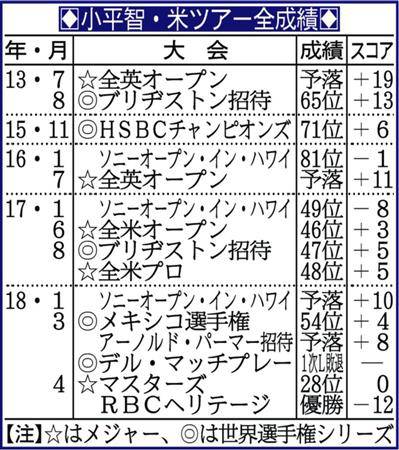 ◆小平智・米ツアー全成績◆
年・月 大会 成績 スコア
13・7 ☆全英オープン 予落 +19
8 ◎ブリヂストン招待 65位 +13
15・11 ◎HSBCチャンピオンズ 71位 +6
16・1 ソニーオープン・イン・ハワイ 81位 -1
7 ☆全英オープン 予落 +11
17・1 ソニーオープン・イン・ハワイ 49位 -8
6 ☆全米オープン 46位 +3
8 ◎ブリヂストン招待 47位 +5
☆全米プロ 48位 +5
18・1 ソニーオープン・イン・ハワイ 予落 +10
3 ◎メキシコ選手権 54位 +4
アーノルド・パーマー招待 予落 +8
◎デル・マッチプレー 1次L敗退 ―
4 ☆マスターズ 28位 0
RBCヘリテージ 優勝 -12
【注】☆はメジャー、◎は世界選手権シリーズ